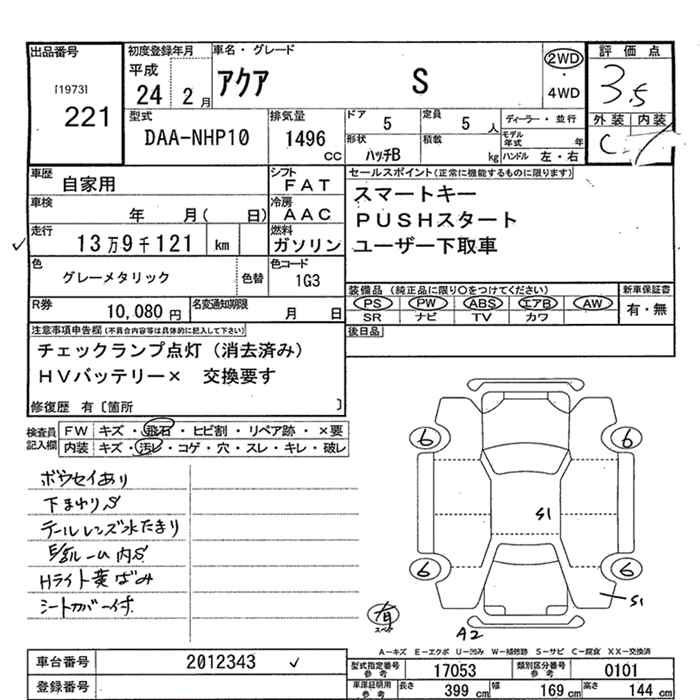 出品番号
[1973]
221
初度登録年月
平成
24 2 月
車名・グレード
アクア S
2WD
・
4WD
評価点
3.5
外装 内装
C
型式
DAA-NHP10
排気量
1496
CC
ドア
5
定員
5 人
形状
ハッチB
積載
kg
ディーラー・並行
モデル年式 年
ハンドル 左・右
車歴
自家用
シフト
FAT
車検
年 月( 日)
冷房
AAC
走行
13万9千121 km
燃料
ガソリン
色
グレーメタリック
色替
色コード
1G3
R券
10,080 円
名変通知期限
月 日
セールスポイント(正常に機能するものに限ります)
スマートキー
PUSHスタート
ユーザー下取車
装備品 (純正品に限り○をつけてください)
PS PW ABS エアB AW
SR ナビ TV カワ
新車保証書
有・無
後日品
注意事項申告欄(不具合内容等は具体的に記入して下さい)
チェックランプ点灯(消去済み)
HVバッテリー× 交換要す
修復歴 有〔箇所 〕
検査員
記入欄
FW キズ・飛石・ヒビ割・リペア跡・×要
内装 キズ・汚レ・コゲ・穴・スレ・キレ・破レ
ボウセイあり
下まわりS
テールレンズ水たまり
ルーム内S
Hライト黄ばみ
シートカバー付
6 6
S1
6 6
S1
有
スペア
A2
A-キズ E-エクボ U-凹み W-補修跡 S-サビ C-腐食 XX-交換済
車台番号
2012343
登録番号
型式指定番号
参考
17053
類別区分番号
参考
0101
車庫証明用
参考
長さ
399 cm
幅
169 cm
高さ
144 cm